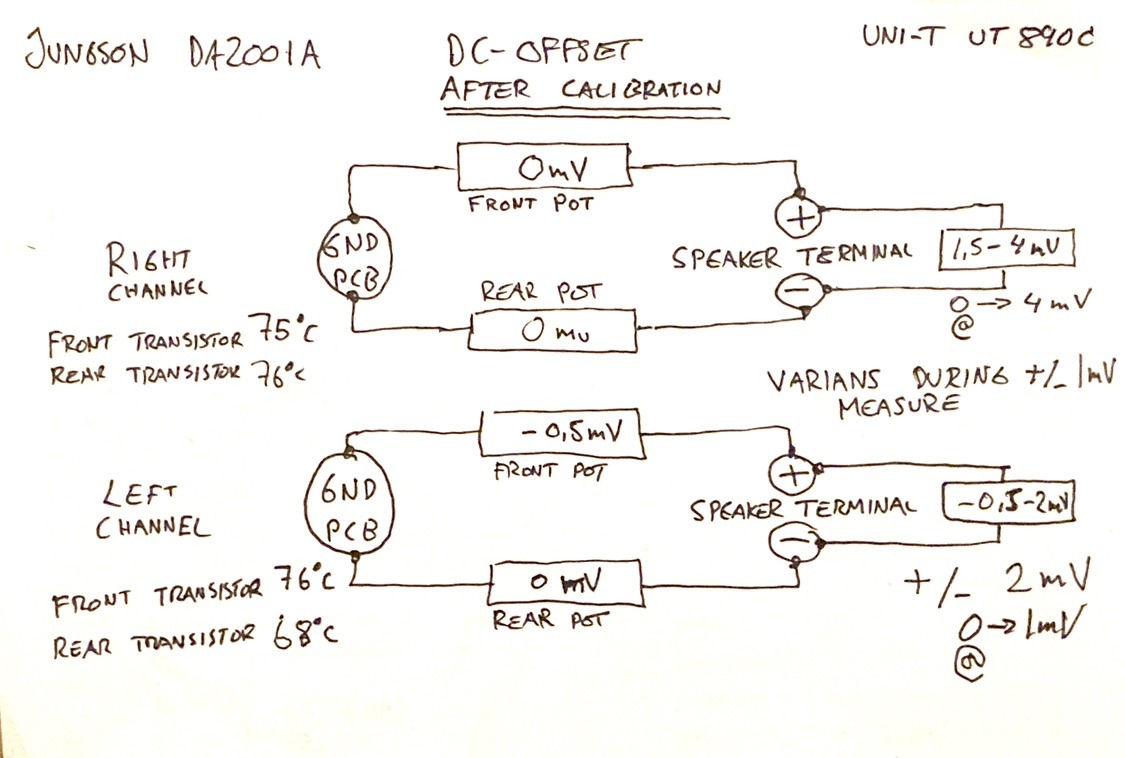 JUNGSON DA2001A
DC-OFFSET
AFTER CALIBRATION
UNI-T UT890C
0mV
FRONT POT
+
GND
PCB
RIGHT
CHANNEL
SPEAKER TERMINAL
1,5-4mV
REAR POT
0 mV
-
0 → 4 mV
@
FRONT TRANSISTOR 75°C
REAR TRANSISTOR 76°C
VARIANS DURING +/- 1mV
MEASURE
-0,5mV
FRONT POT
+
GND
PCB
LEFT
CHANNEL
SPEAKER TERMINAL
-0,5-2mV
-
0 mV
REAR POT
FRONT TRANSISTOR 76°C
REAR TRANSISTOR 68°C
+/- 2mV
0 → 1mV
@